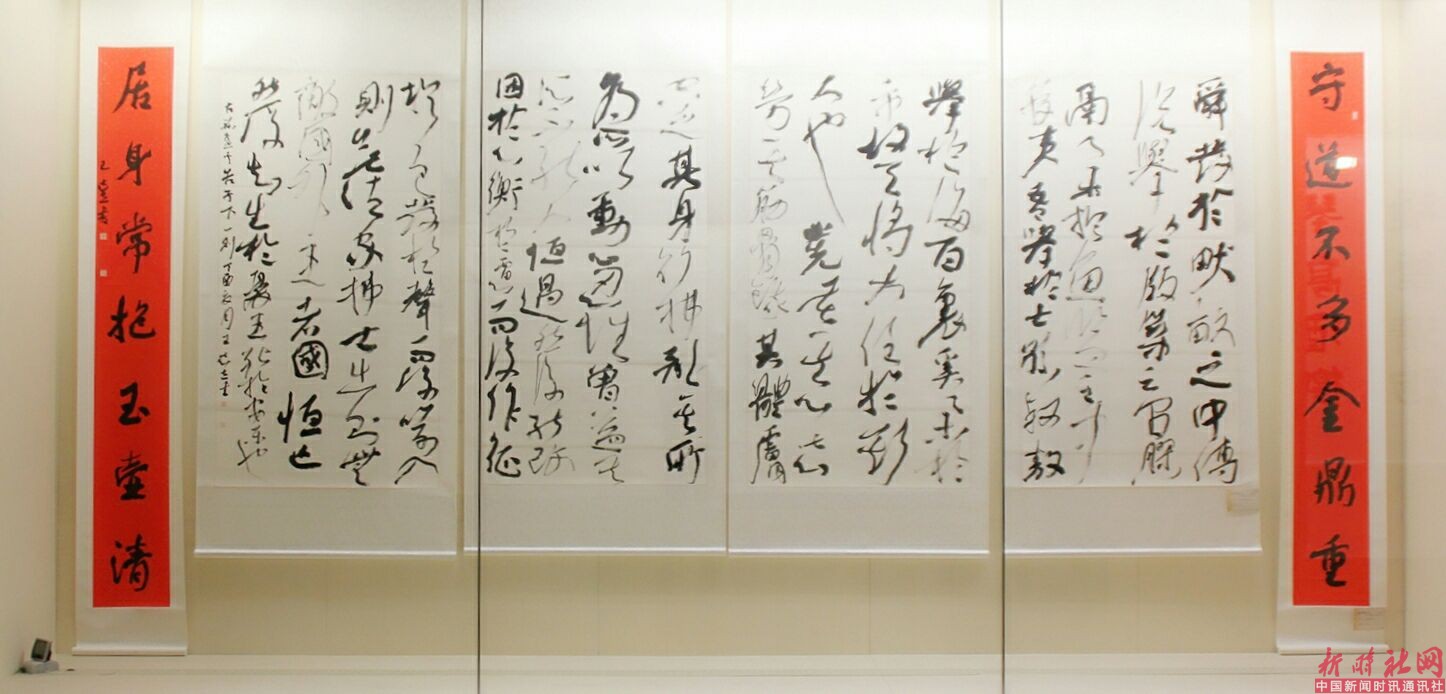 守道不多金鼎重
舜發於畎畝之中傅
說舉於版築之間膠
夷吾舉於士孫叔敖
舉於海百裏奚舉於
人也
勞其筋骨餓其體膚
空乏其身行拂亂其所
為所以動心忍性曾益其
所不能人恒過然後能改
困於心衡於慮而後作徵
於色發於聲而後喻入
則無法家拂士出則無
敵國外患者國恒亡
然後知生於憂患死於安樂也
孟子告子下一則丁酉
居身常抱玉壶清
新时社网
中国新闻时讯通讯社